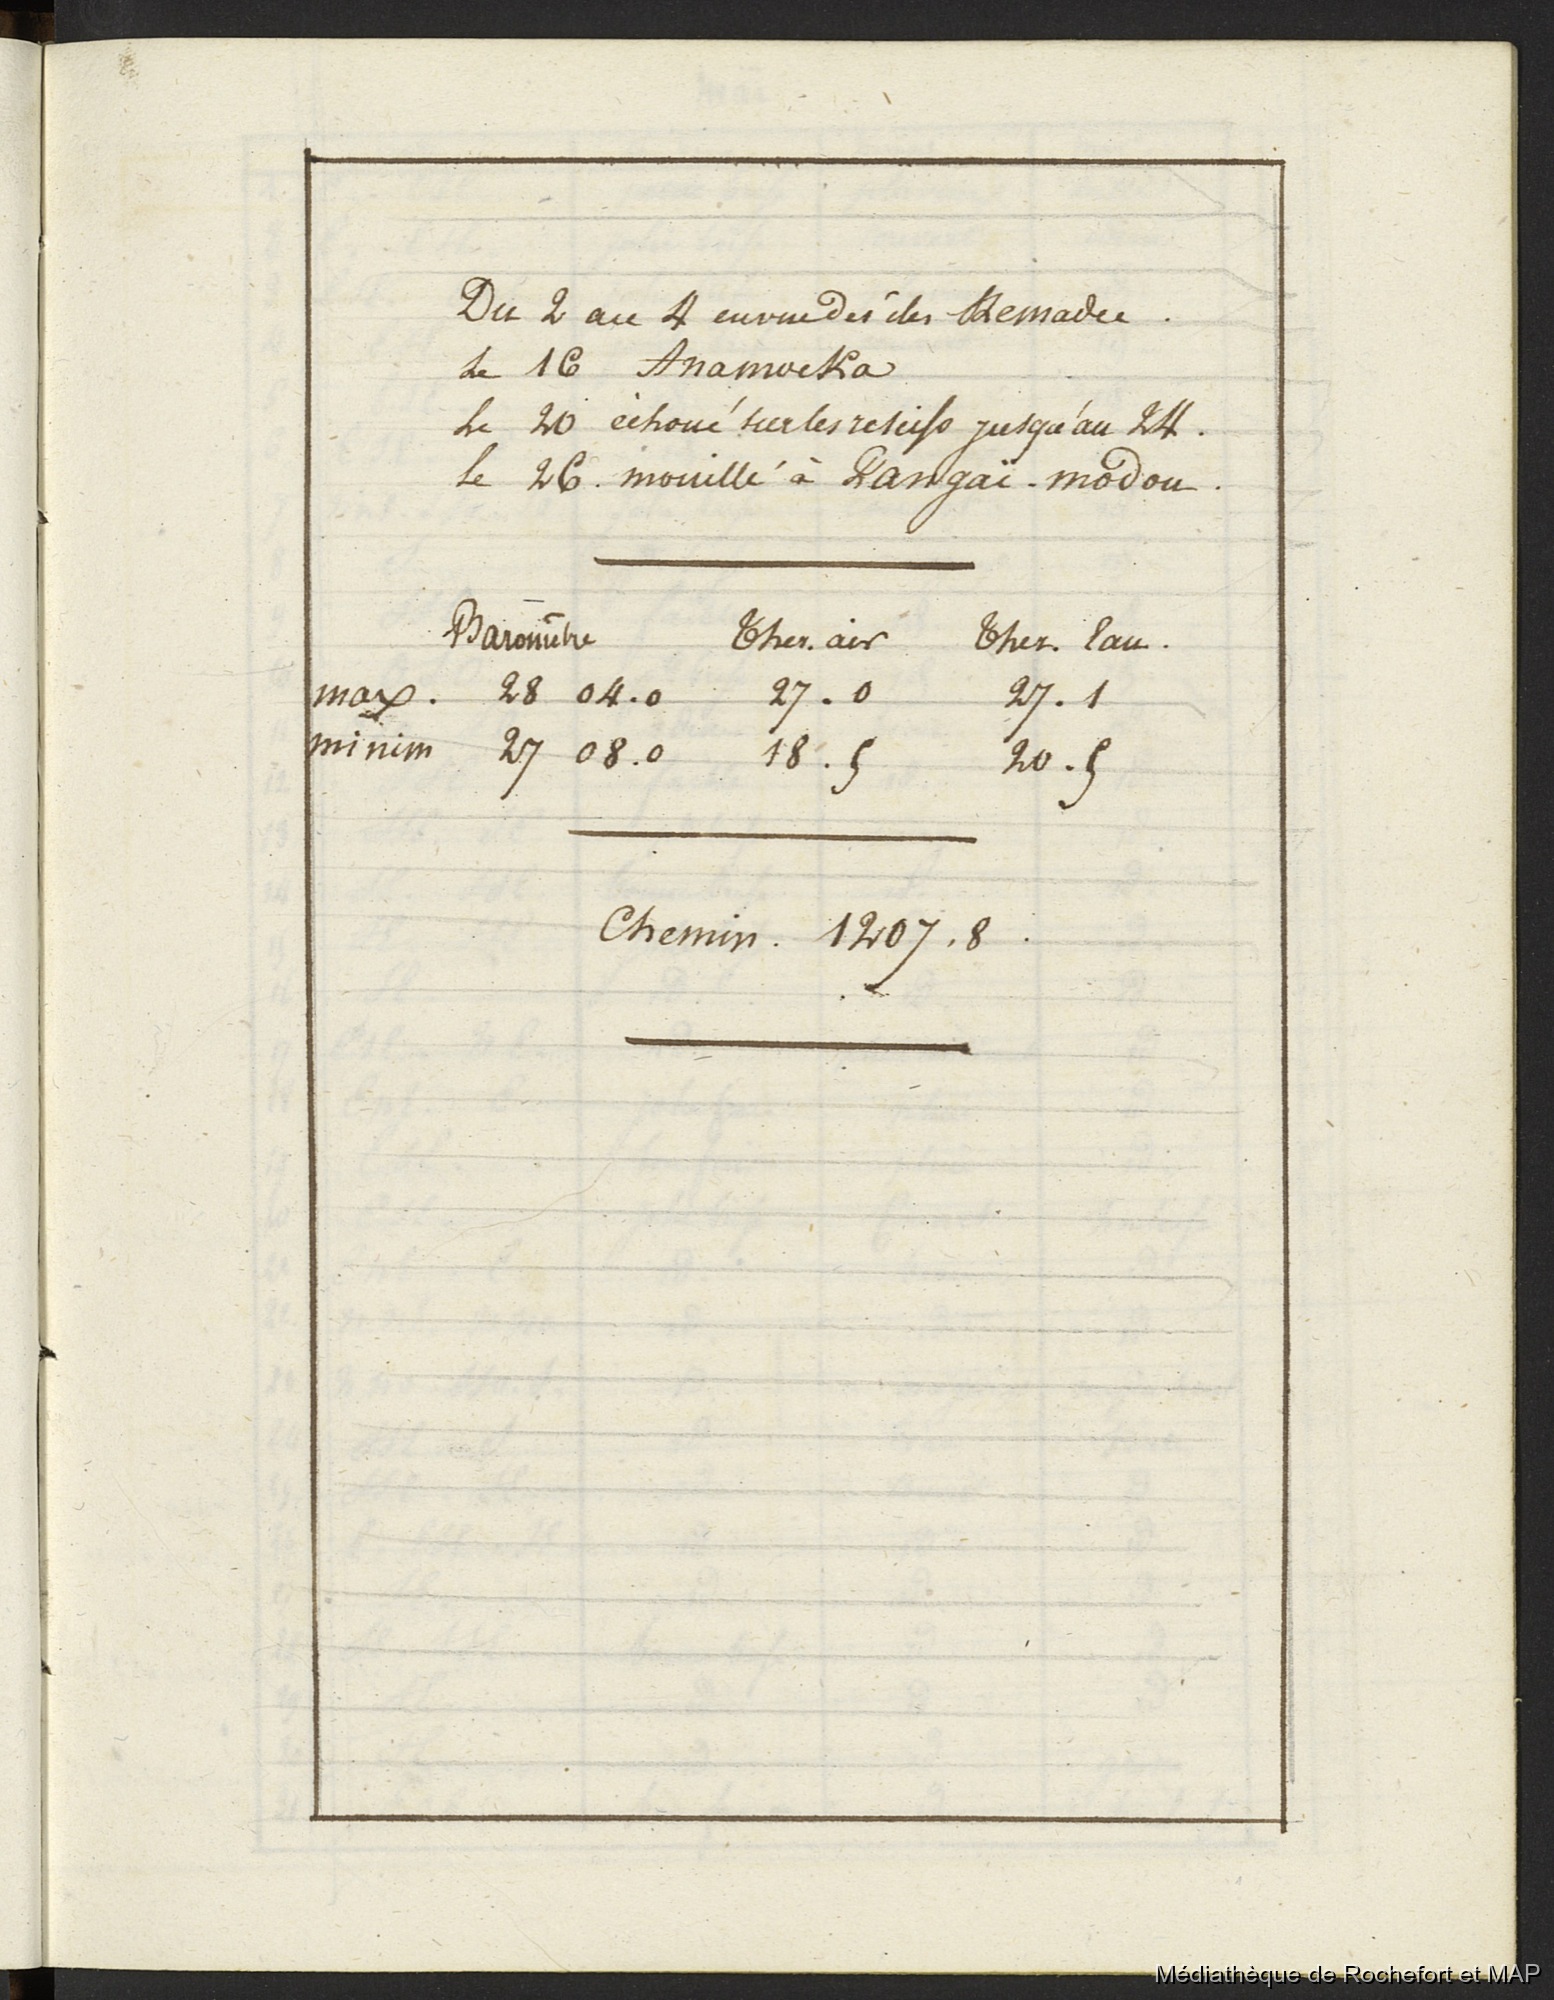 Du 2 au 4 en vue des îles Kemadee.
Le 16 Anamoeka
Le 20 échoué sur les reseifs jusqu'au 24.
Le 26. mouillé à Pangaï-modou.
Baromètre Ther. air Ther. Eau.
max. 28 04.0 27.0 27.1
minim 27 08.0 18.5 20.5
Chemin. 1207.8.
Médiathèque de Rochefort et MAP